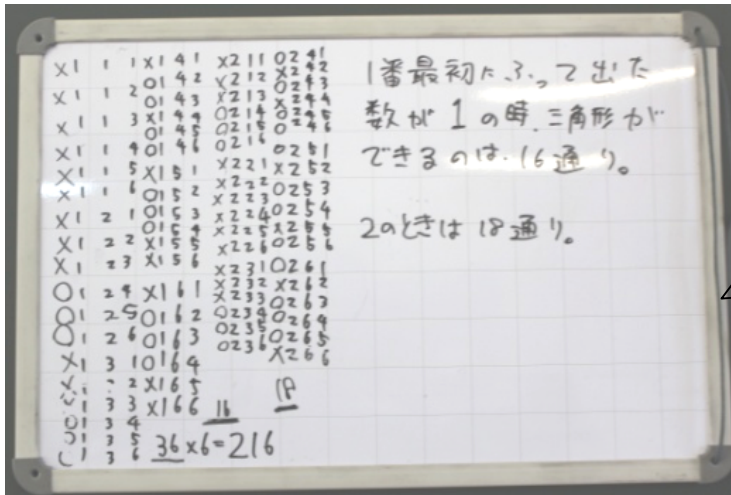 ×1 1 1
×1 1 2
×1 1 3
×1 1 4
×1 1 5
×1 1 6
×1 2 1
×1 2 2
×1 2 3
○1 2 4
○1 2 5
○1 2 6
×1 3 1
2
1 3 3
○1 3 4
○1 3 5
1 3 6
×141
○142
○143
×144
○145
○146
×151
○152
○153
○154
×155
×156
×161
○162
○163
○164
×165
×166
36×6=216
×211
×212
×213
○214
○215
○216
×221
×222
×223
×224
×225
×226
×231
×232
×233
○234
○235
○236
16
○241
×242
○243
×244
○245
○246
○251
×252
○253
○254
×255
○256
○261
×262
○263
○264
○265
×266
18
1番最初にふって出た
数が1の時、三角形が
できるのは、16通り。
2のときは18通り。